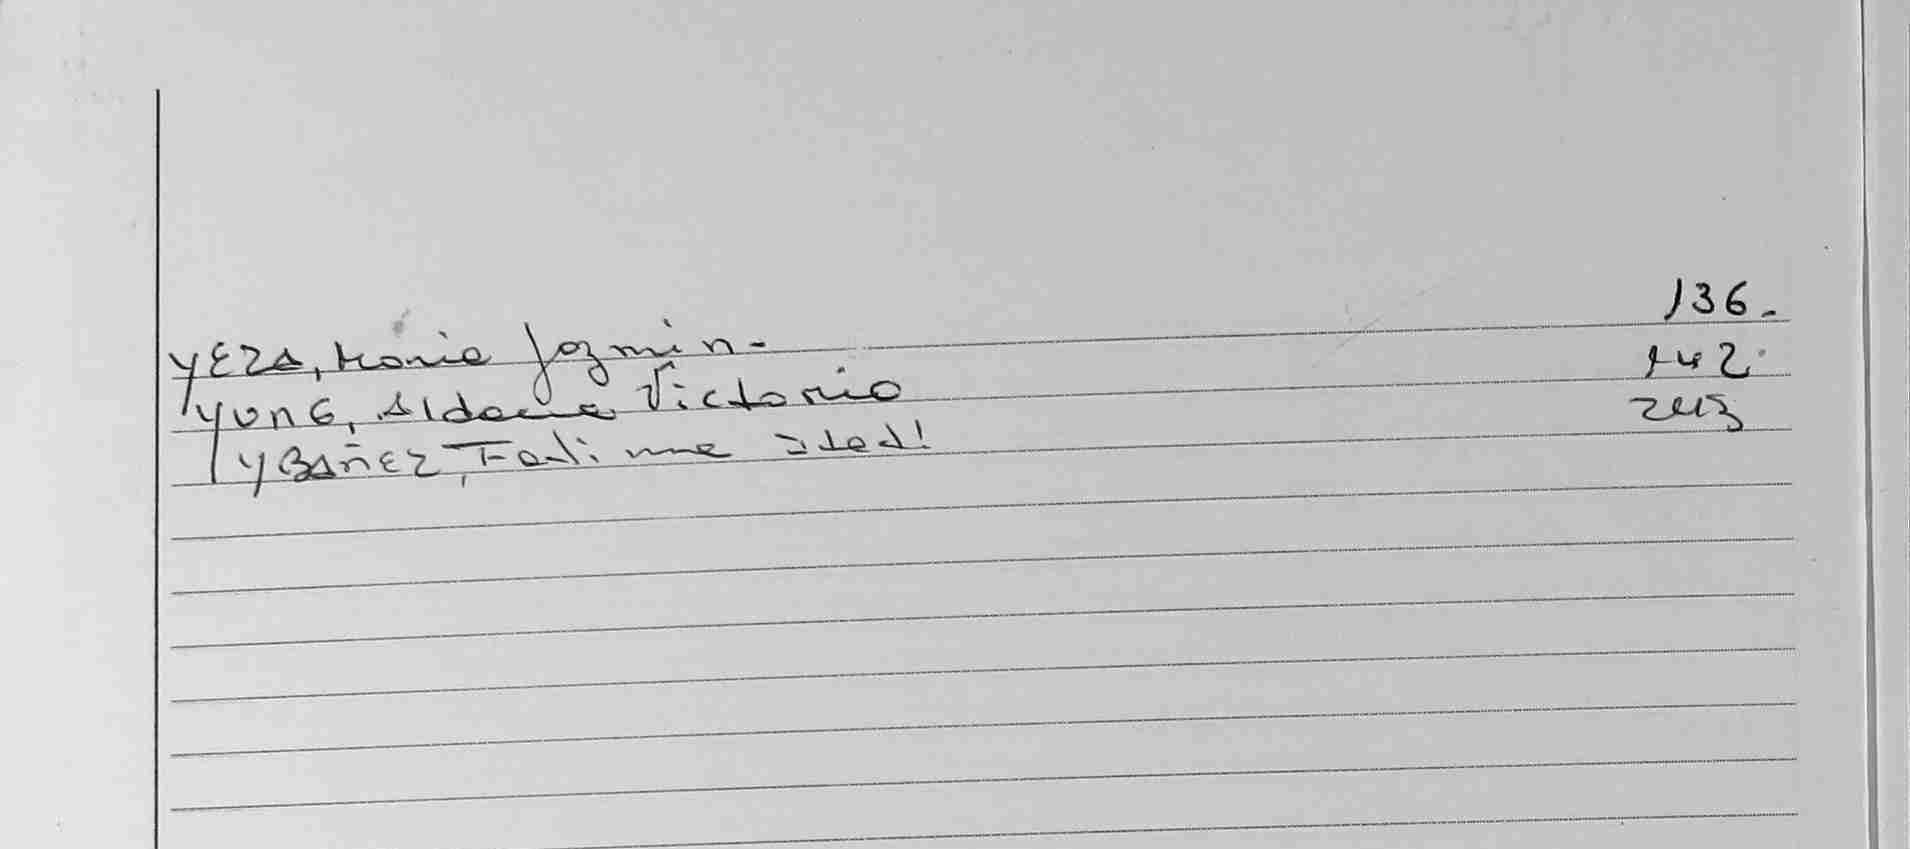 YEZA, Maria Jazmin. 136.
YUNG, Aldana Victoria 142.
YBAÑEZ, Fatima 243